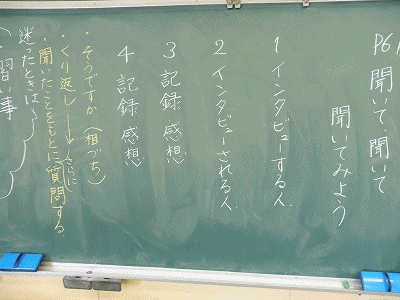 P61 聞いて、聞いて
聞いてみよう
1 インタビューする人
2 インタビューされる人
3 記録 感想
4 記録 感想
・そうですか(相づち)
・くり返し→さらに
・聞いたことをもとに質問する
迷ったときは〜
習い事